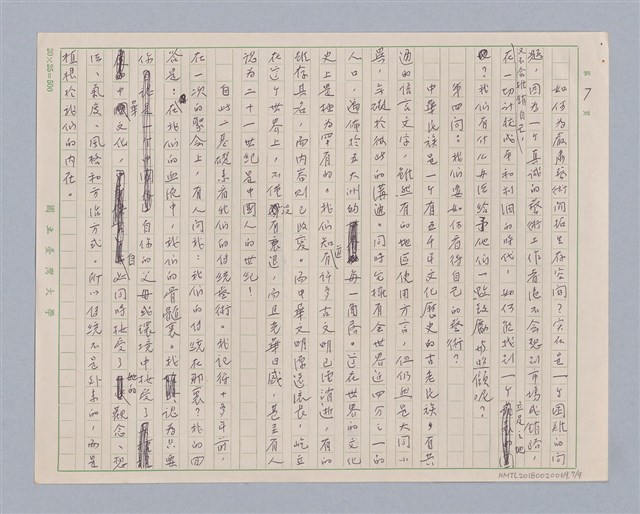 第 7 頁
如何為嚴肅藝術開拓生存空間？實在是一個困難的問
題，因為一个真誠的藝術工作者也不會想到市場或銷路，
又不會推銷自己，
在一切計較成本和利潤的時代，如何能找到一个立足之地
呢？我們有什么再給予他們一點鼓勵或照顧呢？
第四問：我們要如何看待自己的藝術？
中華民族是一个有五千年文化歷史的古老民族，有共
通的語言文字，雖然有的地區使用方言，但仍然是大同小
異，無礙於彼此的溝通。同時它擁有全世界近四分之一的
人口，遍佈於五大洲的每一角落。這在世界的文化
史上是極為罕有的。我們知道有許多古文明已經消逝，有的
雖存其名，而內容則已改變。而中華文明源遠流長，屹立
在這个世界上，不僅沒有衰退，而且光華日盛，甚至有人
認為二十一世紀是中國人的世紀！
自此一基礎來看我們的傳統藝術。我記得十多年前，
在一次的聚會上，有人問我：我們的傳統在那裏？我的回
答是：在我們的血液中，我們的骨髓裏。我認為只要
你自你的父母或環境中接受了
中華文化，自然同時接受了她的觀念、想
法、氣度、風格和方法方式。所以傳統不是外來的，而是
植根於我們的內在。
20×25=500
國立臺灣大學
NMTL20180020049.7/9